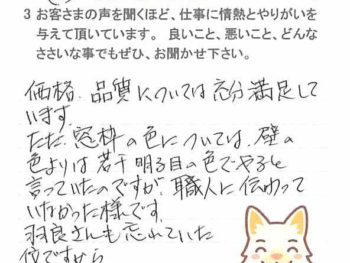 3 お客さまの声を聞くほど、仕事に情熱とやりがいを
与えて頂いています。 良いこと、悪いこと、どんな
ささいな事でもぜひ、お聞かせ下さい。
価格、品質については充分満足して
います。
ただ、窓枠の色については、壁の
色よりは若干明る目の色でやると
言っていたのですが、職人に伝わって
いなかった様です。
羽良さんも忘れていた
位ですから